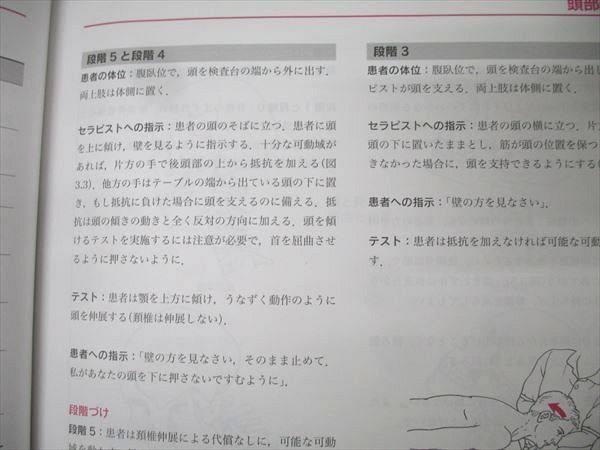 頭部
段階5と段階4
患者の体位：腹臥位で，頭を検査台の端から外に出す．
両上肢は体側に置く．
セラピストへの指示：患者の頭のそばに立つ．患者に頭
を上に傾け，壁を見るように指示する．十分な可動域が
あれば，片方の手で後頭部の上から抵抗を加える(図
3.3)．他方の手はテーブルの端から出ている頭の下に置
き，もし抵抗に負けた場合に頭を支えるのに備える．抵
抗は頭の傾きの動きと全く反対の方向に加える．頭を傾
けるテストを実施するには注意が必要で，首を屈曲させ
るように押さないように．
テスト：患者は顎を上方に傾け，うなずく動作のように
頭を伸展する(頚椎は伸展しない)．
患者への指示：「壁の方を見なさい，そのまま止めて．
私があなたの頭を下に押さないですむように」．
段階づけ
段階5：患者は頚椎伸展による代償なしに，可能な可動
段階3
患者の体位：腹臥位で，頭を検査台の端から出し
ピストが頭を支える．両上肢は体側に置く．
セラピストへの指示：患者の頭の横に立つ．片
頭の下に置いたままとし，筋が頭の位置を保つ
きなかった場合に，頭を支持できるようにする(
患者への指示：「壁の方を見なさい」．
テスト：患者は抵抗を加えなければ可能な可動
す．